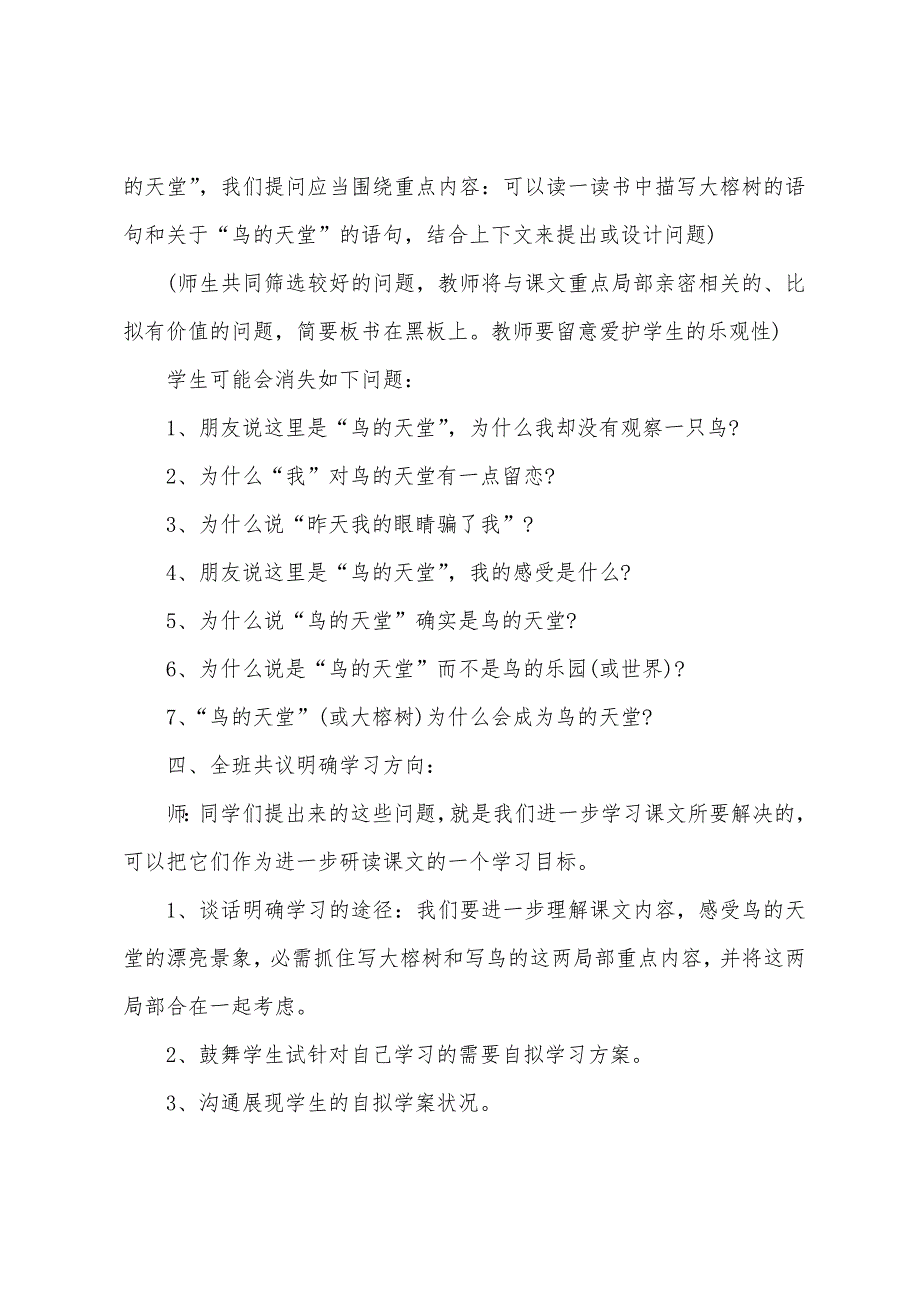 的天堂”，我们提问应当围绕重点内容：可以读一读书中描写大榕树的语
句和关于“鸟的天堂”的语句，结合上下文来提出或设计问题)
(师生共同筛选较好的问题，教师将与课文重点局部亲密相关的、比
拟有价值的问题，简要板书在黑板上。教师要留意爱护学生的乐观性)
学生可能会消失如下问题：
1、朋友说这里是“鸟的天堂”，为什么我却没有观察一只鸟?
2、为什么“我”对鸟的天堂有一点留恋?
3、为什么说“昨天我的眼睛骗了我”?
4、朋友说这里是“鸟的天堂”，我的感受是什么?
5、为什么说“鸟的天堂”确实是鸟的天堂?
6、为什么说是“鸟的天堂”而不是鸟的乐园(或世界)?
7、“鸟的天堂”(或大榕树)为什么会成为鸟的天堂?
四、全班共议明确学习方向：
师：同学们提出来的这些问题，就是我们进一步学习课文所要解决的，
可以把它们作为进一步研读课文的一个学习目标。
1、谈话明确学习的途径：我们要进一步理解课文内容，感受鸟的天
堂的漂亮景象，必需抓住写大榕树和写鸟的这两局部重点内容，并将这两
局部合在一起考虑。
2、鼓舞学生试针对自己学习的需要自拟学习方案。
3、沟通展现学生的自拟学案状况。